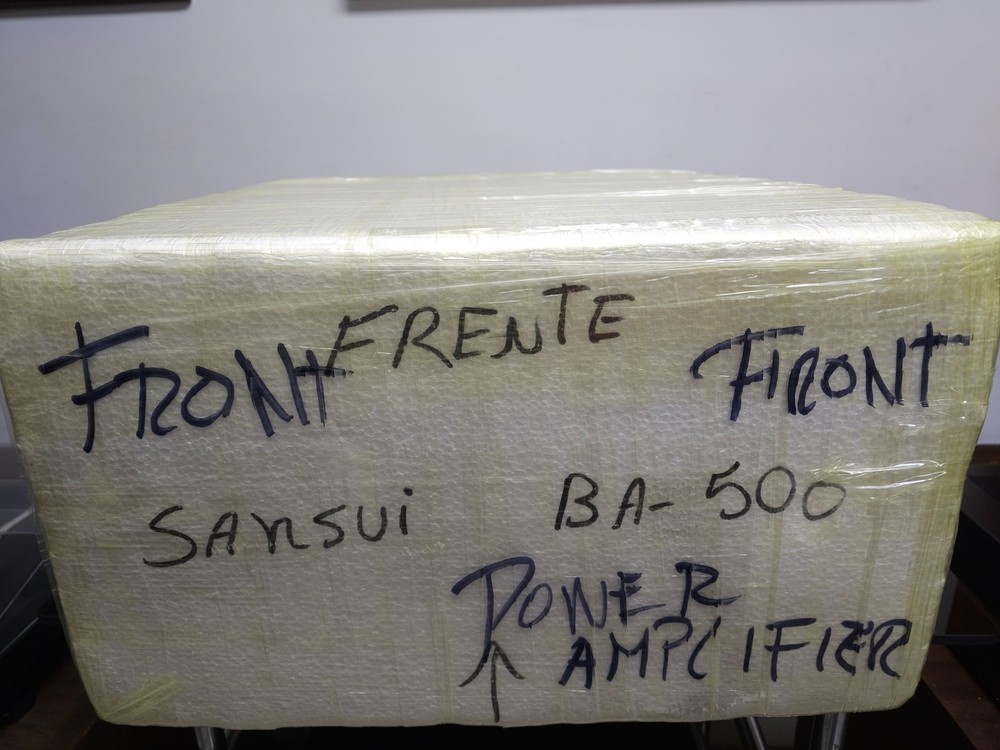 FRENTE
FRONT FRONT
SANSUi BA-500
POWER
AMPLIFIER